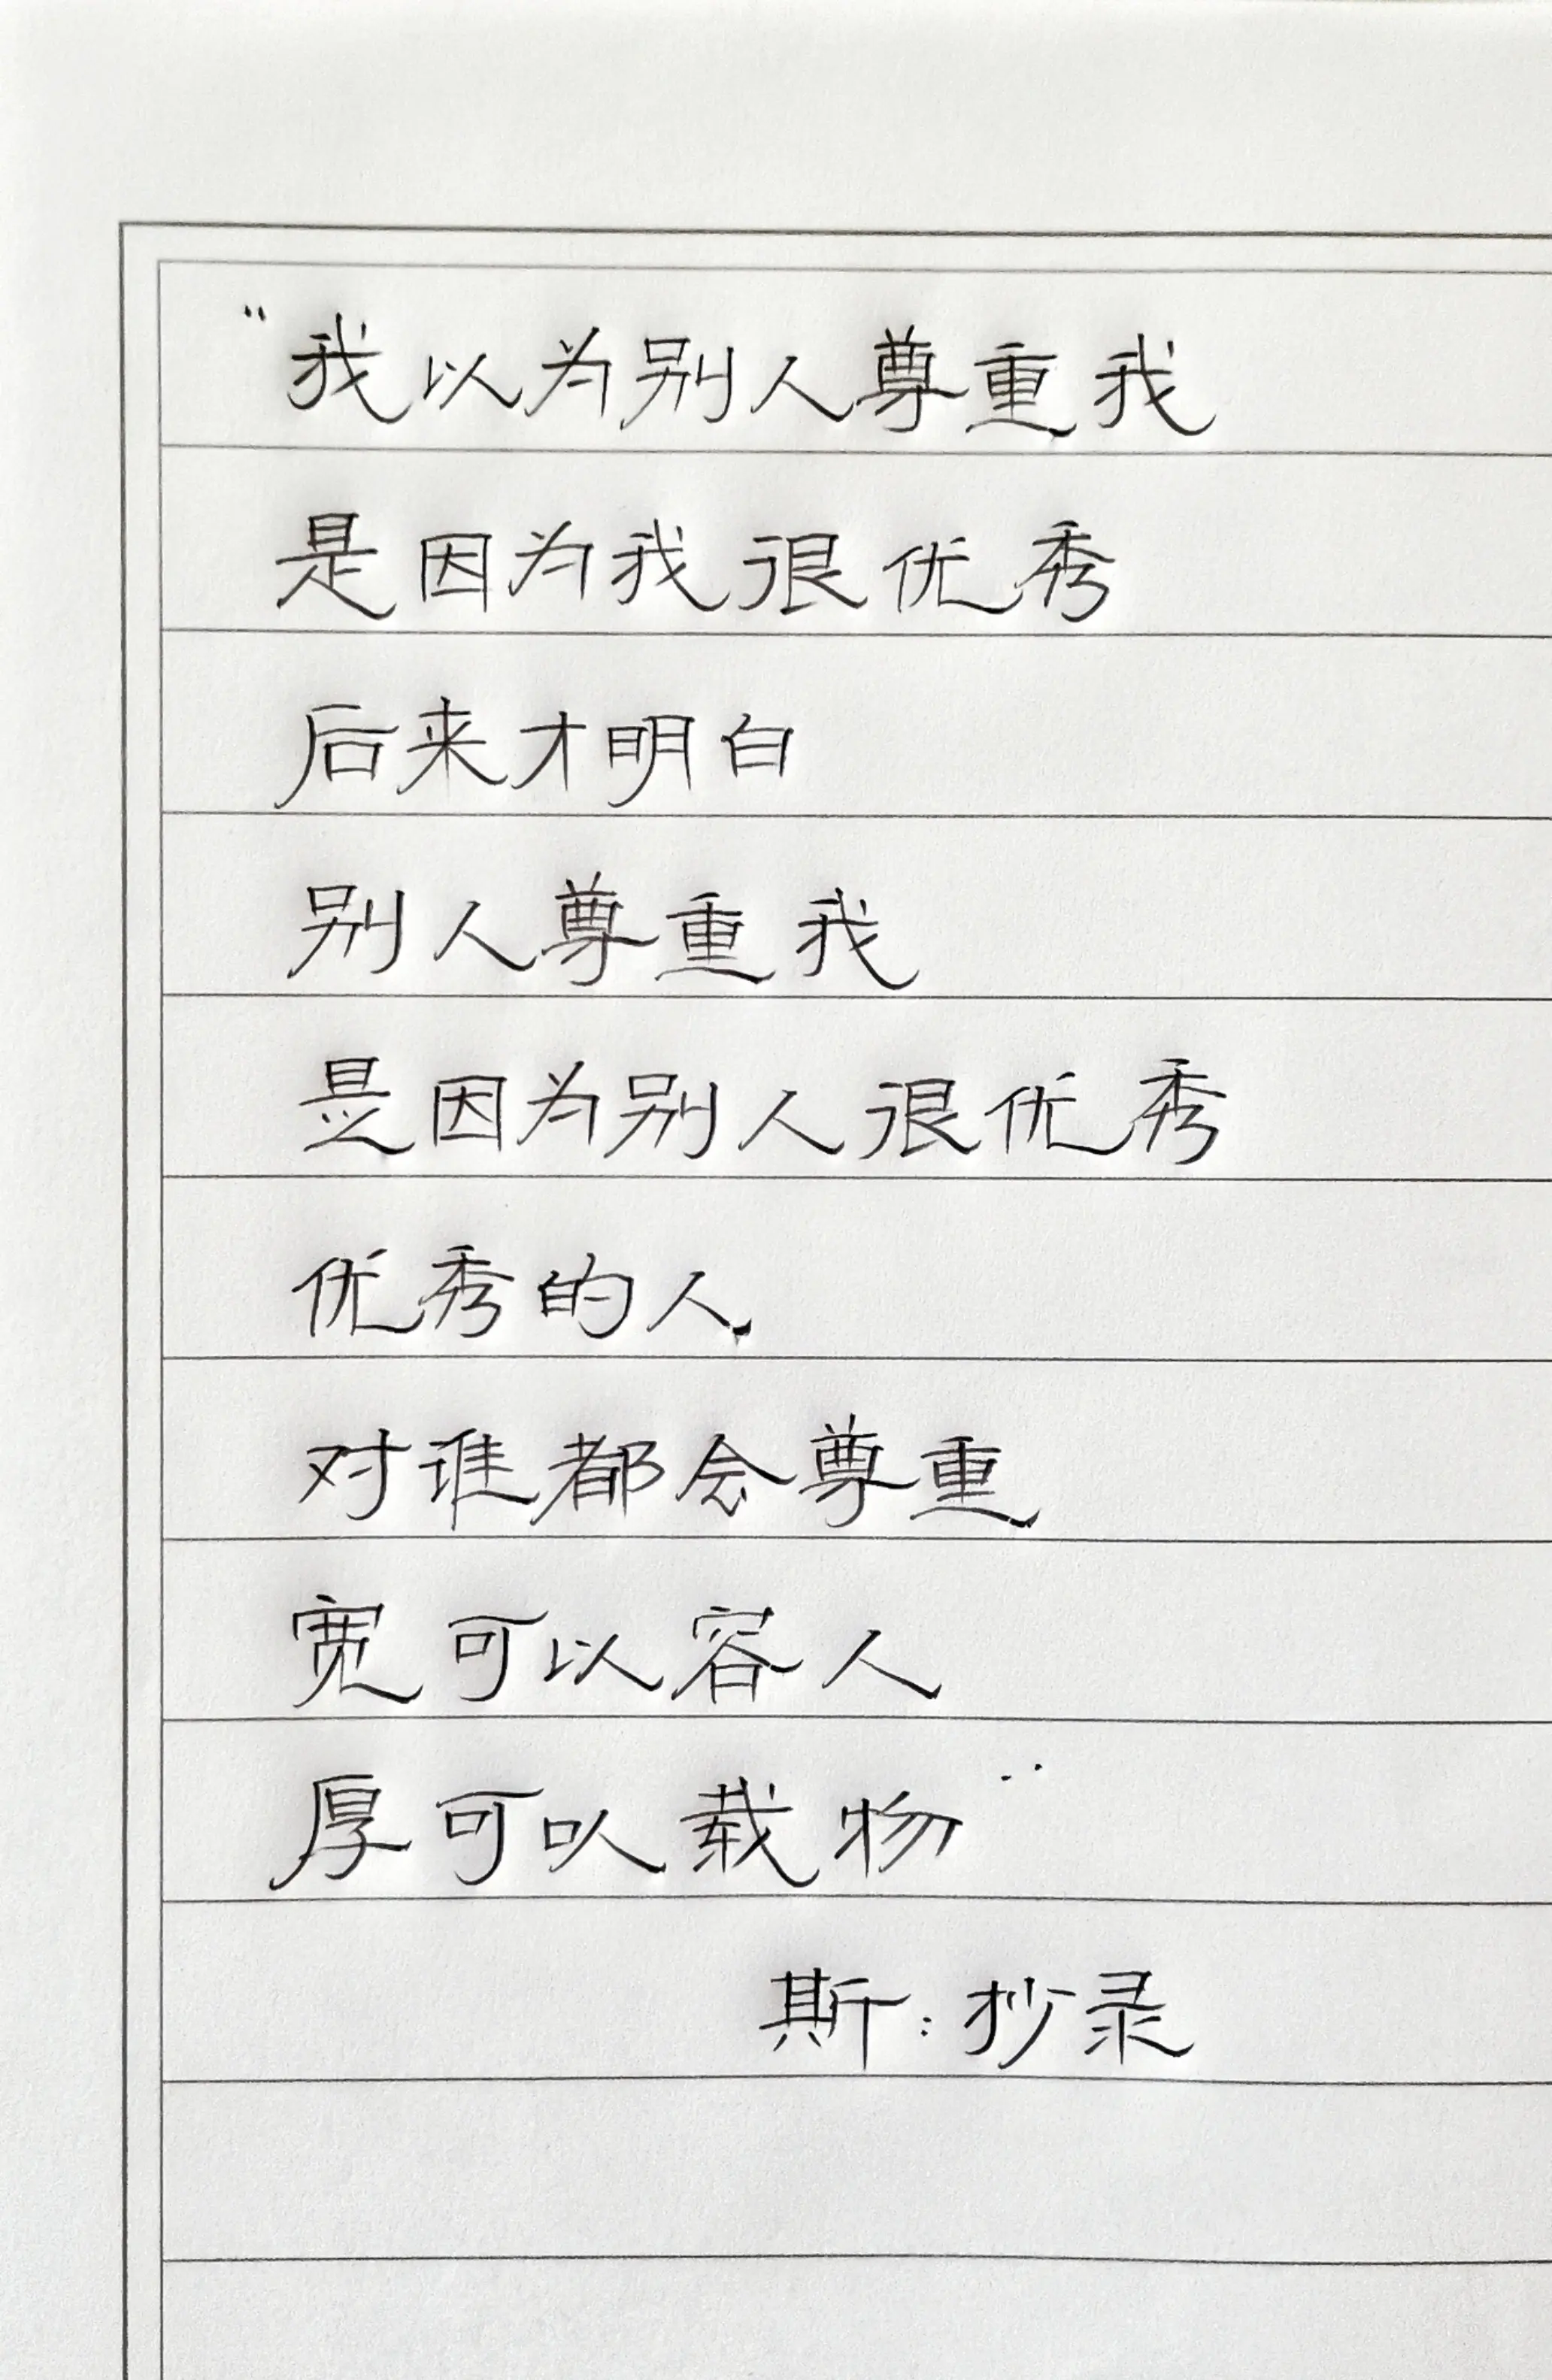 “我以为别人尊重我
是因为我很优秀
后来才明白
别人尊重我
是因为别人很优秀
优秀的人
对谁都会尊重
宽可以容人
厚可以载物”
斯：抄录